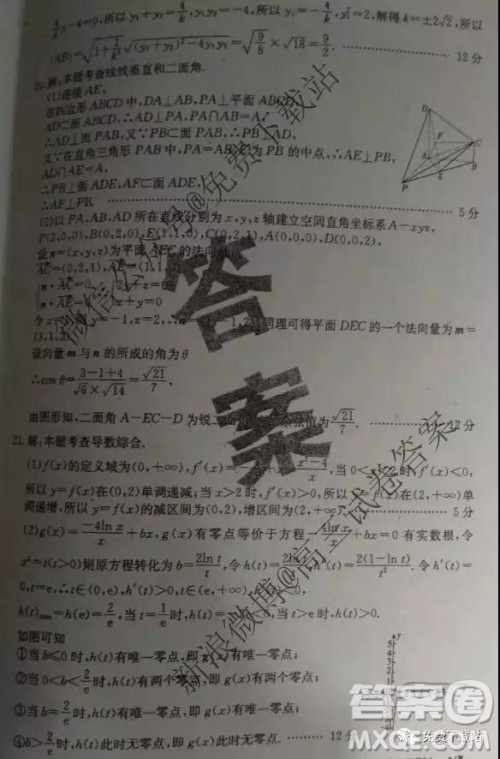 y-4=0,所以 y₁+y₂=4/k,y₁y₂=-4,所以 y₁=-4/k,y₁²=2,解得 k=±2√2,所以
|AB|=√(1+1/k²)√((y₁+y₂)²-4y₁y₂)=√(9/8)×√18=9/2. 12分
20.解:本题考查线线垂直和二面角.
(1)连接AE,
在四边形ABCD中,DA⊥AB,PA⊥平面ABCD,
AD⊂面ABCD,∴AD⊥PA,PA∩AB=A,
∴AD⊥面PAB,又∵PB⊂面PAB,∴PB⊥AD,
又∵在直角三角形PAB中,PA=AB,E为PB的中点,∴AE⊥PB,
AD∩AE=A,
∴PB⊥面ADE,AF⊂面ADE,
∴AF⊥PB. 5分
(2)以PA,AB,AD所在直线分别为x,y,z轴建立空间直角坐标系A-xyz,
P(2,0,0),B(0,2,0),E(1,1,0),C(0,2,1),A(0,0,0),D(0,0,2),
设n=(x,y,z)为平面AEC的法向量
AC=(0,2,1),AE=(1,1,0),
n·AC=0
n·AE=0 x+y=0
令x=1 =-1,z=2 -1,2),同理可得平面DEC的一个法向量为m=
(3,1,2)
设向量m与n的所成的角为θ
∴cos θ=(3-1+4)/(√6×√14)=√21/7,
由图形知,二面角A-EC-D为锐二 弦值为√21/7. 12分
21.解:本题考查导数综合.
(1)f(x)的定义域为(0,+∞),f′(x)= x²-4/x,当0< x<2时,f′(x)<0,
所以y=f(x)在(0,2)单调递减,当x>2时,f′(x)>0,所以y=f(x)在(2,+∞)单
调递增,所以y=f(x)的减区间为(0,2),增区间为(2,+∞) 5分
(2)g(x)=-4ln x/x+bx,g(x)有零点等价于方程-4ln x/x+bx=0有实数根,令
x²=t(t>0)则原方程转化为b=2ln t/t,令h(t)=2ln t/t,h′(t)=2(1-ln t)/t².令h′(t)=
0,t=e,∴t∈(0,e),h′(t)>0,t∈(e,+∞),
h(t)max=h(e)=2/e,当t=1/e时,h(t) <0,当t>e时,h(t)>0.
如图可知
①当b≤0时,h(t)有唯一零点,即g(x)有唯一零点;
②当0<b<2/e时,h(t)有两个零点,即g(x)有两个零点;
③当b=2/e时,h(t)有唯一零点,即g(x)有唯一零点;
④b>2/e时,h(t)此时无零点,即g(x)此时无零点. 12分
D
A
P
E
C
y
微信公众号@免费下载站
答案
新浪微博@高三试卷答案
答案圈
MXQE.COM
免费下载站